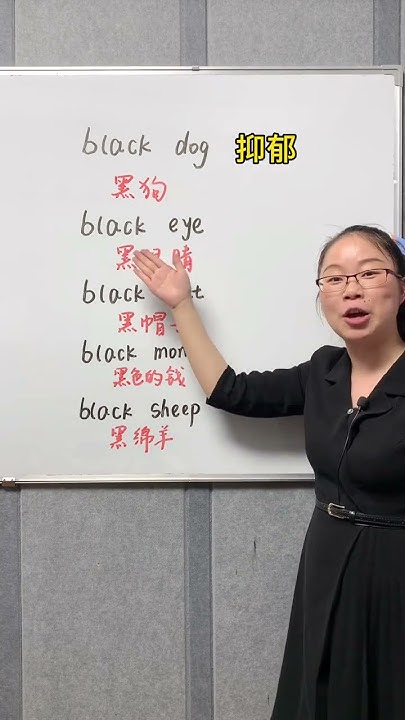 black dog 抑郁
黑狗
black eye
黑 睛
black
黑帽
black
黑色的钱
black sheep
黑绵羊